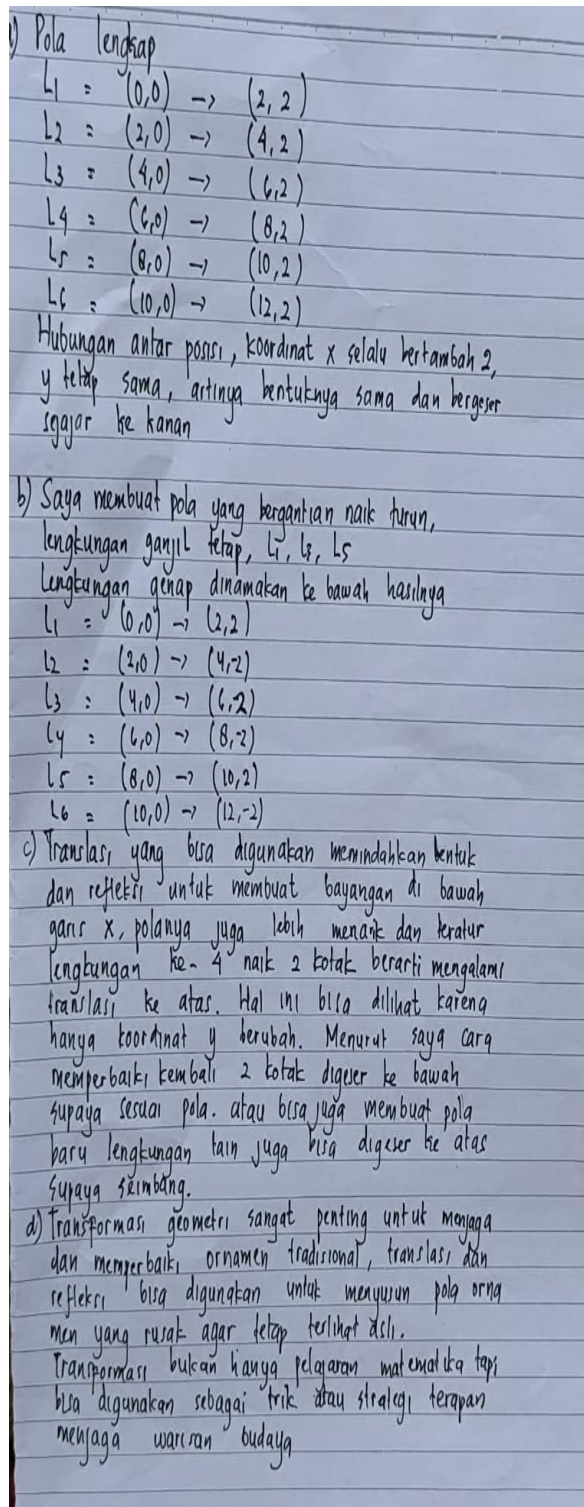 a) Pola lengkap
L1 = (0,0) → (2,2)
L2 = (2,0) → (4,2)
L3 = (4,0) → (6,2)
L4 = (6,0) → (8,2)
L5 = (8,0) → (10,2)
L6 = (10,0) → (12,2)
Hubungan antar posisi, koordinat x selalu bertambah 2,
y tetap sama, artinya bentuknya sama dan bergeser
sejajar ke kanan
b) Saya membuat pola yang bergantian naik turun,
lengkungan ganjil tetap, L1, L3, L5
Lengkungan genap dinamakan ke bawah hasilnya
L1 = (0,0) → (2,2)
L2 = (2,0) → (4,-2)
L3 = (4,0) → (6,2)
L4 = (6,0) → (8,-2)
L5 = (8,0) → (10,2)
L6 = (10,0) → (12,-2)
c) Translasi yang bisa digunakan memindahkan bentuk
dan refleksi untuk membuat bayangan di bawah
garis x, polanya juga lebih menarik dan teratur
lengkungan ke-4 naik 2 kotak berarti mengalami
translasi ke atas. Hal ini bisa dilihat karena
hanya koordinat y berubah. Menurut saya cara
memperbaiki kembali 2 kotak digeser ke bawah
supaya sesuai pola. atau bisa juga membuat pola
baru lengkungan lain juga bisa digeser ke atas
supaya seimbang.
d) Transformasi geometri sangat penting untuk menjaga
dan memperbaiki ornamen tradisional, translasi dan
refleksi bisa digunakan untuk menyusun pola orna
men yang rusak agar tetap terlihat asli.
Transformasi bukan hanya pelajaran matematika tapi
bisa digunakan sebagai trik atau strategi terapan
menjaga warisan budaya